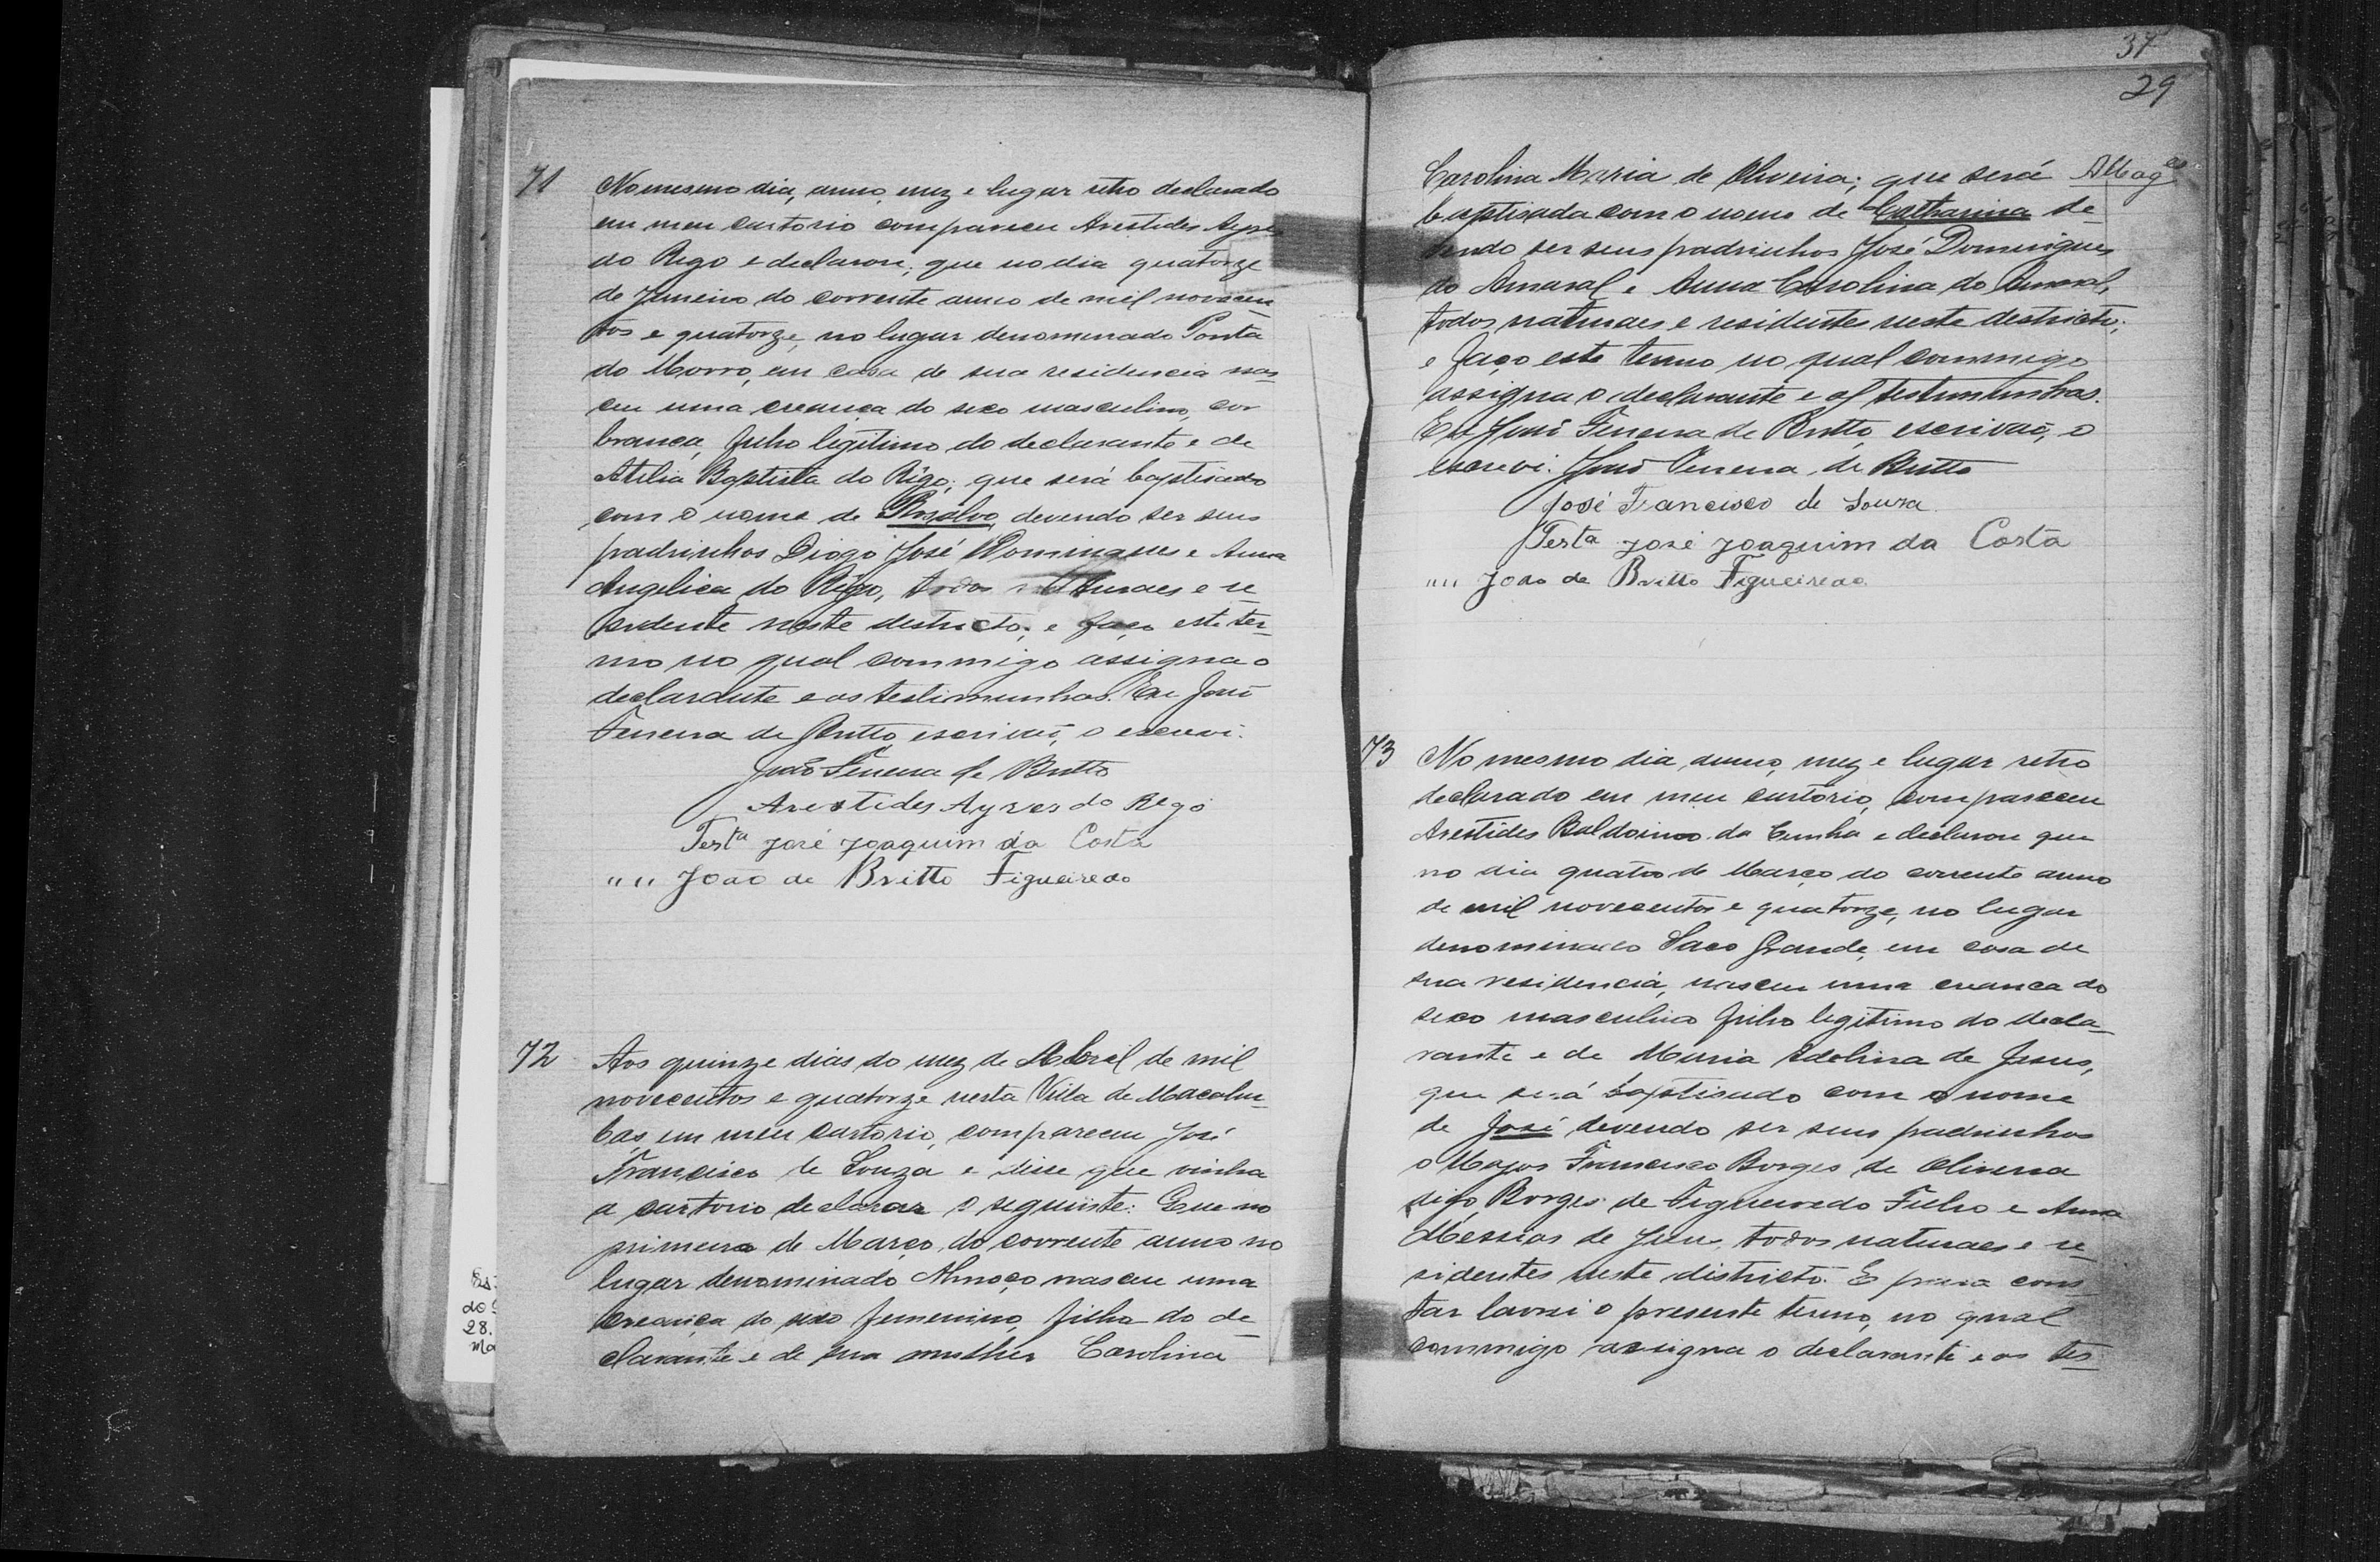 71
No mesmo dia, anno, mez e lugar retro declarado
em meu cartorio compareceu Arestides Ayres
do Rego e declarou; que no dia quatorze
de Janeiro do corrente anno de mil novecen
tos e quatorze, no lugar denominado Ponta
do Morro, em casa de sua residencia nas
ceu uma creança do sexo masculino, cor
branca, filho legitimo do declarante e de
Atilia Baptista do Rêgo; que será baptisado
com o nome de devendo ser seus
padrinhos Diogo José Domingues e Anna
Angelica do Rêgo, todos naturaes e re
sidente neste destricto; e faço este ter
mo no qual commigo assigna o
declarante e as testimunhas. Eu João
Ferreira de Britto escrivaõ, o escrevi.
João Ferreira de Britto
Arestides Ayres do Rego
Testa José Joaquim da Costa
"" João de Britto Figueiredo
72
Aos quinze dias do mez de Abril de mil
novecentos e quatorze nesta Villa de Macahu
bas, em meu cartorio, compareceu José
Francisco de Souza e disse que vinha
a cartorio declarar o seguinte: Que no
primeiro de Março do corrente anno no
lugar denominado nasceu uma
creança do sexo femenino, filha do de
clarante e de sua mulher Carolina
37
29
Carolina Maria de Oliveira; que será
baptisada com o nome de Catharina de
vendo ser seus padrinhos José Domingues
do Amaral e Anna Carolina do Amaral,
todos naturaes e residentes neste destricto;
e faço este termo no qual commigo
assigna o declarante e as testimunhas.
Eu João Ferreira de Britto escrivaõ, o
escrevi. João Ferreira de Britto
José Francisco de Souza
Testa José Joaquim da Costa
"" João de Britto Figueiredo
73
No mesmo dia, anno, mez e lugar retro
declarado em meu cartorio, compareceu
Arestides Baldoino da Cunha e declarou que
no dia quatro de Março do corrente anno
de mil novecentos e quatorze, no lugar
denominado Saco Grande, em casa de
sua residencia, nasceu uma creanca do
sexo masculino filho legitimo do decla
rante e de Maria Idelina de Jesus,
que será baptisado com o nome
de José devendo ser seus padrinhos
o Major Francisco Borges de Oliveira
digo Borges de Figueiredo Filho e Anna
Messias de Jesus, todos naturaes e re
sidentes neste districto. E para cons
tar lavrei o presente termo, no qual
commigo assigna o declarante e as tes